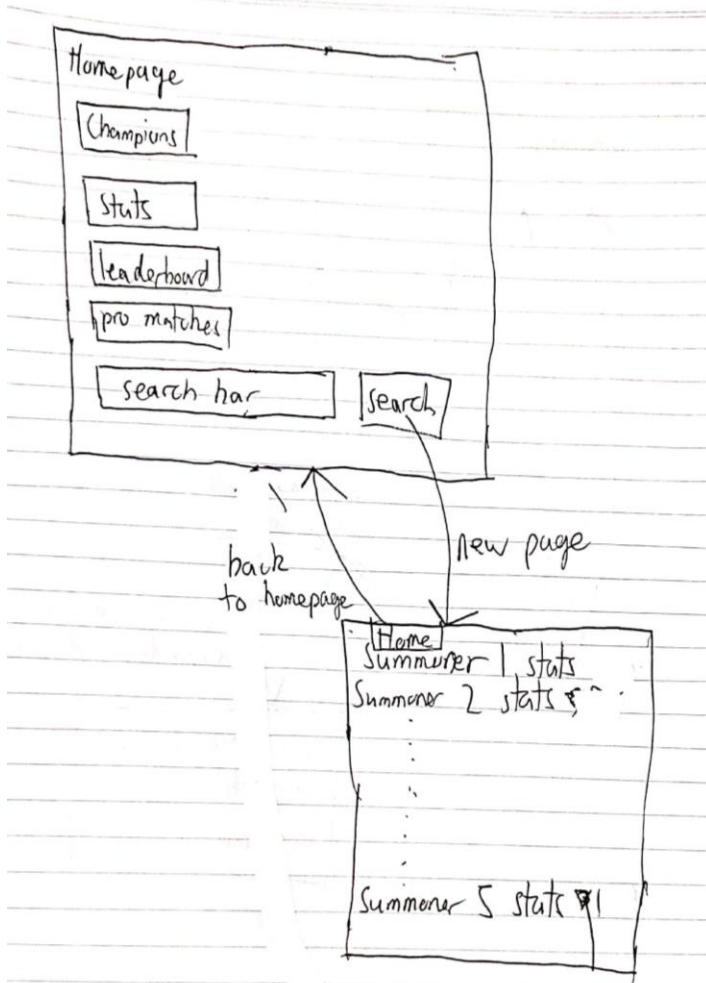 Homepage
Champions
stats
leaderboard
pro matches
search bar
search
new page
back
to homepage
Home
Summoner 1 stats
Summoner 2 stats
Summoner 5 stats